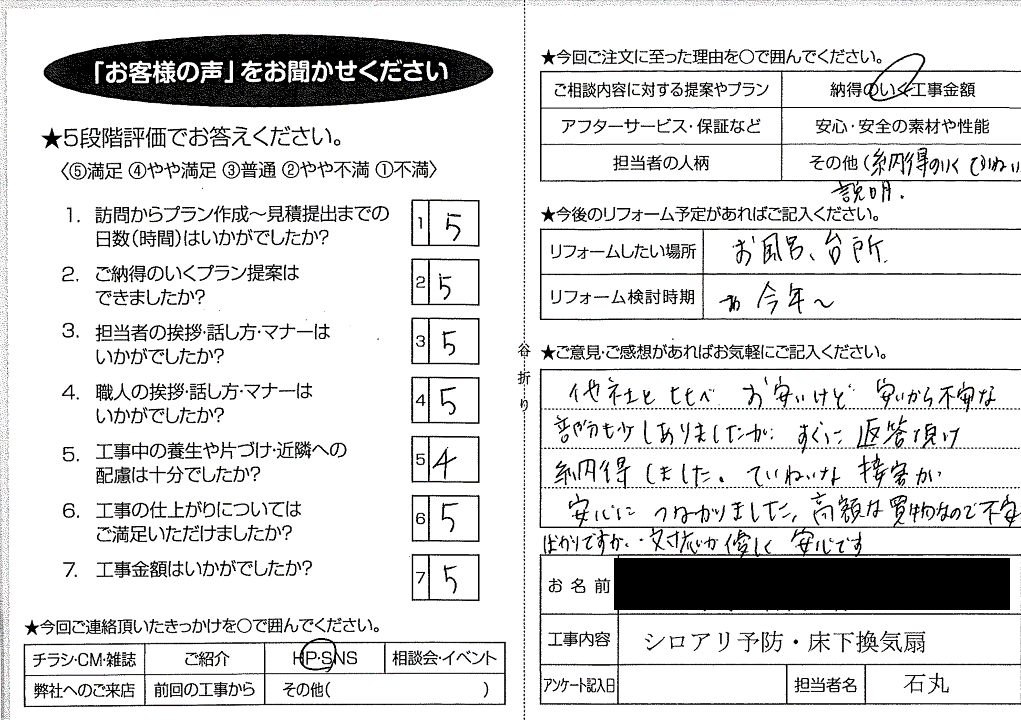 「お客様の声」をお聞かせください
★5段階評価でお答えください。
〈⑤満足 ④やや満足 ③普通 ②やや不満 ①不満〉
1. 訪問からプラン作成～見積提出までの
日数(時間)はいかがでしたか?
1 5
2. ご納得のいくプラン提案は
できましたか?
2 5
3. 担当者の挨拶・話し方・マナーは
いかがでしたか?
3 5
4. 職人の挨拶・話し方・マナーは
いかがでしたか?
4 5
5. 工事中の養生や片づけ・近隣への
配慮は十分でしたか?
5 4
6. 工事の仕上がりについては
ご満足いただけましたか?
6 5
7. 工事金額はいかがでしたか?
7 5
★今回ご連絡頂いたきっかけを○で囲んでください。
チラシ・CM・雑誌 ご紹介 HP・SNS 相談会・イベント
弊社へのご来店 前回の工事から その他( )
谷折り
★今回ご注文に至った理由を○で囲んでください。
ご相談内容に対する提案やプラン 納得のいく工事金額
アフターサービス・保証など 安心・安全の素材や性能
担当者の人柄 その他(納得のいく ていねい
説明.
★今後のリフォーム予定があればご記入ください。
リフォームしたい場所 お風呂、台所
リフォーム検討時期 今年～
★ご意見・ご感想があればお気軽にご記入ください。
他社と比べ お安いけど 安いから不安な
部分も少しありましたが すぐに返答頂け
納得しました。ていねいな接客が
安心につながりました。高額な買物なので不安
ばかりですが、対応が優しく 安心です
お名前
工事内容 シロアリ予防・床下換気扇
アンケート記入日 担当者名 石丸